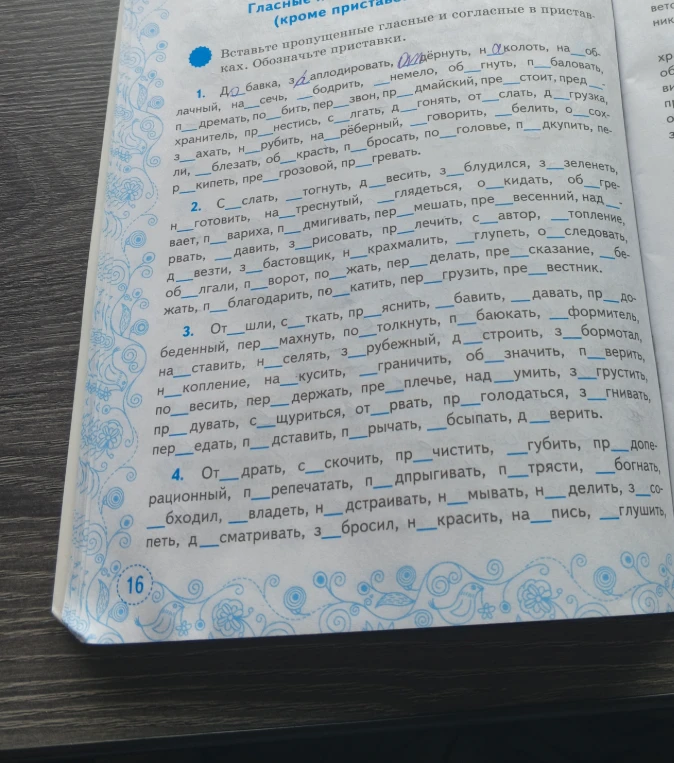 Гласные
(кроме пристав
Вставьте пропущенные гласные и согласные в пристав-
ках. Обозначьте приставки.
1. До бавка, з а аплодировать, ____дёрнуть, н а колоть, на__об-
лачный, на__сечь, __бодрить, __немело, об__гнуть, п__баловать,
п__дремать, по__бить, пер__звон, пр__дмайский, пре__стоит, пред__-
хранитель, пр__нестись, с__лгать, д__гонять, от__слать, д__грузка,
з__ахать, н__рубить, на__рёберный, __говорить, __белить, о__сох-
ли, __блезать, об__красть, п__бросать, по__головье, п__дкупить, пе-
р__кипеть, пре__грозовой, пр__гревать.
2. С__слать, __тогнуть, д__весить, з__блудился, з__зеленеть,
н__готовить, на__треснутый, __глядеться, о__кидать, об__гре-
вает, п__вариха, п__дмигивать, пер__мешать, пре__весенний, над__-
рвать, __давить, з__рисовать, пр__лечить, с__автор, __топление,
д__везти, з__бастовщик, н__крахмалить, __глупеть, о__следовать,
об__лгали, п__ворот, по__жать, пер__делать, пре__сказание, __бе-
жать, п__благодарить, по__катить, пер__грузить, пре__вестник.
3. От__шли, с__ткать, пр__яснить, __бавить, __давать, пр__до-
беденный, пер__махнуть, по__толкнуть, п__баюкать, __формитель,
на__ставить, н__селять, з__рубежный, д__строить, з__бормотал,
н__копление, на__кусить, __граничить, об__значить, п__верить,
по__весить, пер__держать, пре__плечье, над__умить, з__грустить,
пр__дувать, с__щуриться, от__рвать, пр__голодаться, з__гнивать,
пер__едать, п__дставить, п__рычать, __бсыпать, д__верить.
4. От__драть, с__скочить, пр__чистить, __губить, пр__допе-
рационный, п__репечатать, п__дпрыгивать, п__трясти, __богнать,
__бходил, __владеть, н__дстраивать, н__мывать, н__делить, з__со-
петь, д__сматривать, з__бросил, н__красить, на__пись, __глушить,
16
вето
ник
хр
об